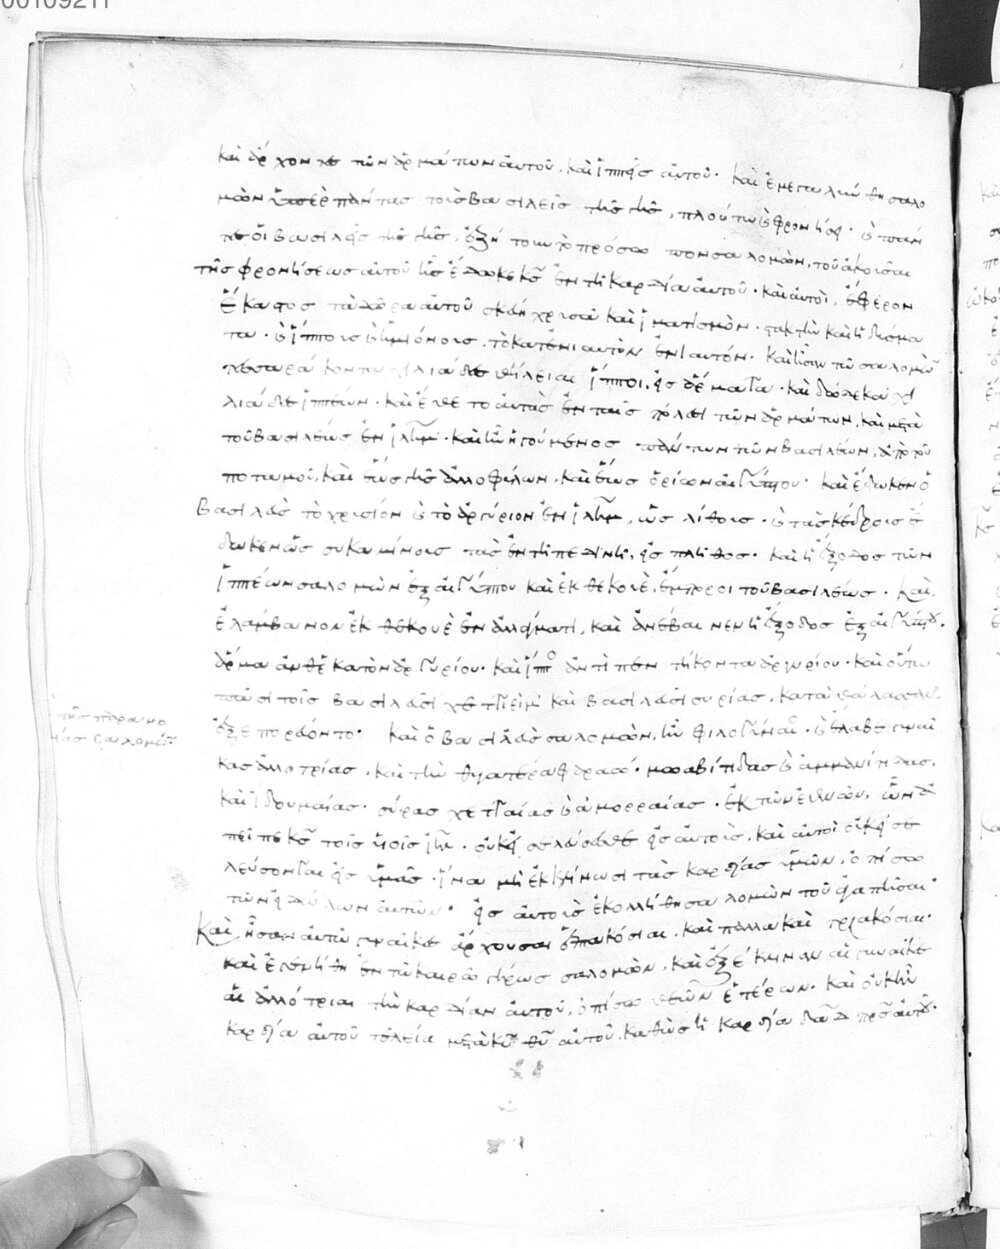 00109211
καὶ ἄρχοντες τῶν ἁρμάτων αὐτοῦ. καὶ ἱππεῖς αὐτοῦ. καὶ ἐμεγαλύνθη σαλο
μὼν ὑπὲρ πάντας τοὺς βασιλεῖς τῆς γῆς, πλούτω καὶ φρονήσει. καὶ πάν
τες οἱ βασιλεῖς τῆς γῆς, ἐζήτουν τὸ πρόσωπον σαλομὼν, τοῦ ἀκοῦσαι
τῆς φρονήσεως αὐτοῦ ἧς ἔδωκε κς ἐν τῆ καρδία αὐτοῦ. καὶ αὐτοὶ, ἔφερον
ἕκαστος τὰ δῶρα αὐτοῦ σκεύη χρυσᾶ καὶ ἱματισμὸν. στακτὴν καὶ ἡδύσμα
τα. καὶ ἵππους καὶ ἡμιόνους. τὸ κατ' ἐνιαυτὸν ἐνιαυτόν. καὶ ἦσαν τῶ σαλομὼν
τέσσαράκοντα χιλιάδες θήλειαι ἵπποι, εἰς ἅρματα. καὶ δώδεκα χι
λιάδες ἱππέων. καὶ ἔθετο αὐτὰς ἐν ταῖς πόλεσι τῶν ἁρμάτων, καὶ μετὰ
τοῦ βασιλέως ἐν ἱλημ. καὶ ἦν ἡγούμενος πάντων τῶν βασιλέων, ἀπὸ τοῦ
ποταμοῦ, καὶ ἕως γῆς ἀλλοφύλων, καὶ ἕως ὁρίων αἰγύπτου. καὶ ἔδωκεν ὁ
βασιλεὺς τὸ χρυσίον καὶ τὸ ἀργύριον ἐν ἱλημ, ὡς λίθους. καὶ τὰς κέδρους ἔ
δωκεν ὡς συκαμίνους τὰς ἐν τῆ πεδινῆ, εἰς πλῆθος. καὶ ἡ ἔξοδος τῶν
ἱππέων σαλομὼν ἐξ αἰγύπτου καὶ ἐκ θεκουὲ, ἔμποροι τοῦ βασιλέως. καὶ
ἐλάμβανον ἐκ θεκουὲ ἐν ἀλλάγματι, καὶ ἀνέβαινεν ἡ ἔξοδος ἐξ αἰγύπτου.
ἅρμα ἀνθ' ἑκατὸν ἀργυρίου. καὶ ἵππος ἀντὶ πεντήκοντα ἀργυρίου. καὶ οὕτω
πᾶσι τοῖς βασιλεῦσι χεττιεὶμ καὶ βασιλεῦσι συρίας, κατὰ θάλασσαν
ἐξεπορεύοντο. καὶ ὁ βασιλεὺς σαλομὼν, ἦν φιλογύναιος. καὶ ἔλαβε γυναῖ
κας ἀλλοτρίας. καὶ τὴν θυγατέρα φαραώ. μωαβίτιδας καὶ ἀμμανίτιδας.
καὶ ἰδουμαίας. σύρας χετταίας καὶ ἀμορραίας. ἐκ τῶν ἐθνῶν, ὧν ἀ
πεῖπε κς τοῖς υἱοῖς ιηλ. οὐκ εἰσελεύσεσθε εἰς αὐτοὺς, καὶ αὐτοὶ οὐκ εἰσε
λεύσονται εἰς ὑμᾶς. ἵνα μὴ ἐκκλίνωσι τὰς καρδίας ὑμῶν, ὀπίσω
τῶν εἰδώλων αὐτῶν. εἰς αὐτοὺς ἐκολλήθη σαλομὼν τοῦ ἀγαπῆσαι.
Καὶ ἦσαν αὐτῶ γυναῖκες ἄρχουσαι ἑπτακόσιαι. καὶ παλλακαὶ τριακόσιαι.
καὶ ἐγενήθη ἐν τῶ καιρῶ γήρως σαλομὼν, καὶ ἐξέκλιναν αἱ γυναῖκες
αἱ ἀλλότριαι τὴν καρδίαν αὐτοῦ, ὀπίσω θεῶν ἑτέρων. καὶ οὐκ ἦν
καρδία αὐτοῦ τελεία μετὰ κυ θυ αὐτοῦ, καθὼς ἡ καρδία δαδ πρς αὐτοῦ.
τῆς παρανο
μίας σαλομῶν